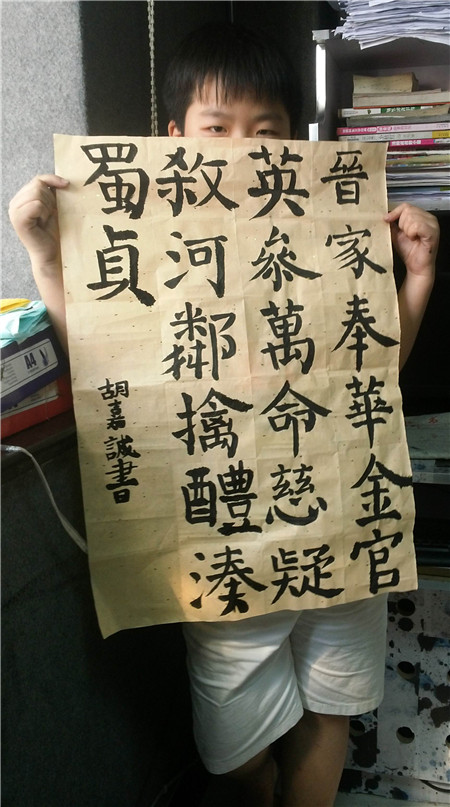 晉家奉華金官
英參萬命慈疑
敘河鄰擒醴湊
蜀貞
胡嘉誠書日
A4